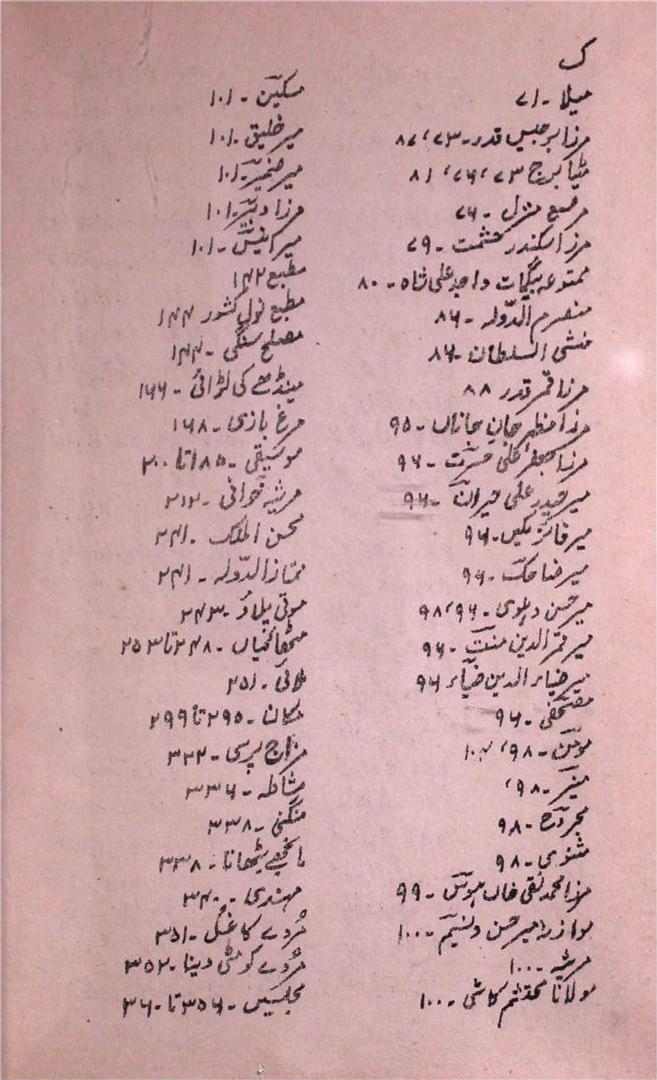 میلا ۔ ۷۱
مرزا برجیس قدر ۔ ۷۳، ۸۷
مٹیا برج ۷۳، ۷۶، ۸۱
مرصع منزل ۔ ۷۶
مرزا سکندر حشمت ۔ ۷۹
ممتوعہ بیگمات واجد علی شاہ ۔ ۸۰
منصرم الدّولہ ۔ ۸۶
منشی السلطان ۔ ۸۶
مرزا قمر قدر ۸۸
مرزا مظہر جانِ جاناں ۔ ۹۵
مرزا جعفر علی حسرت ۔ ۹۶
میر حیدر علی حیران ۔ ۹۶
میر فائز مکیں ۔ ۹۶
میر ضاحک ۔ ۹۶
میر حسن دہلوی ۔ ۹۶، ۹۸
میر قمر الدین منت ۔ ۹۶
میر ضیاء الدین ضیاء ۹۶
مصحفی ۔ ۹۶
مومن ۔ ۹۸، ۱۰۲
منیر ۔ ۹۸،
مجروح ۔ ۹۸
مثنوی ۔ ۹۸
مرزا محمد تقی خاں ہوس ۔ ۹۹
موازنہ میر حسن و نسیم ۔ ۱۰۰
مرثیہ ۔ ۱۰۰
مولانا محتشم کاشی ۔ ۱۰۰
مسکین ۔ ۱۰۱
میر خلیق ۔ ۱۰۱
میر ضمیر ۔ ۱۰۱
مرزا دبیر ۔ ۱۰۱
میر انیس ۔ ۱۰۱
مطبع ۱۴۲
مطبع نول کشور ۱۴۴
مصلح سنگی ۔ ۱۴۴
مینڈھے کی لڑائی ۔ ۱۶۶
مرغ بازی ۔ ۱۶۸
موسیقی ۔ ۱۸۵ تا ۲۰۰
مرثیہ خوانی ۔ ۲۱۲
محسن الملک ۔ ۲۴۱
ممتاز الدّولہ ۔ ۲۴۱
موتی پلاؤ ۔ ۲۴۳
مٹھائیاں ۔ ۲۴۸ تا ۲۵۳
ملائی ۔ ۲۵۱
مکان ۔ ۲۹۵ تا ۲۹۹
مزاج پرسی ۔ ۳۲۲
مشاطہ ۔ ۳۳۶
منگنی ۔ ۳۳۸
مانجھے بٹھانا ۔ ۳۳۸
مہندی ۔ ۳۴۰
مُردے کا غسل ۔ ۳۵۱
مُردے کو مٹی دینا ۔ ۳۵۲
مجلسیں ۔ ۳۵۶ تا ۳۶۰